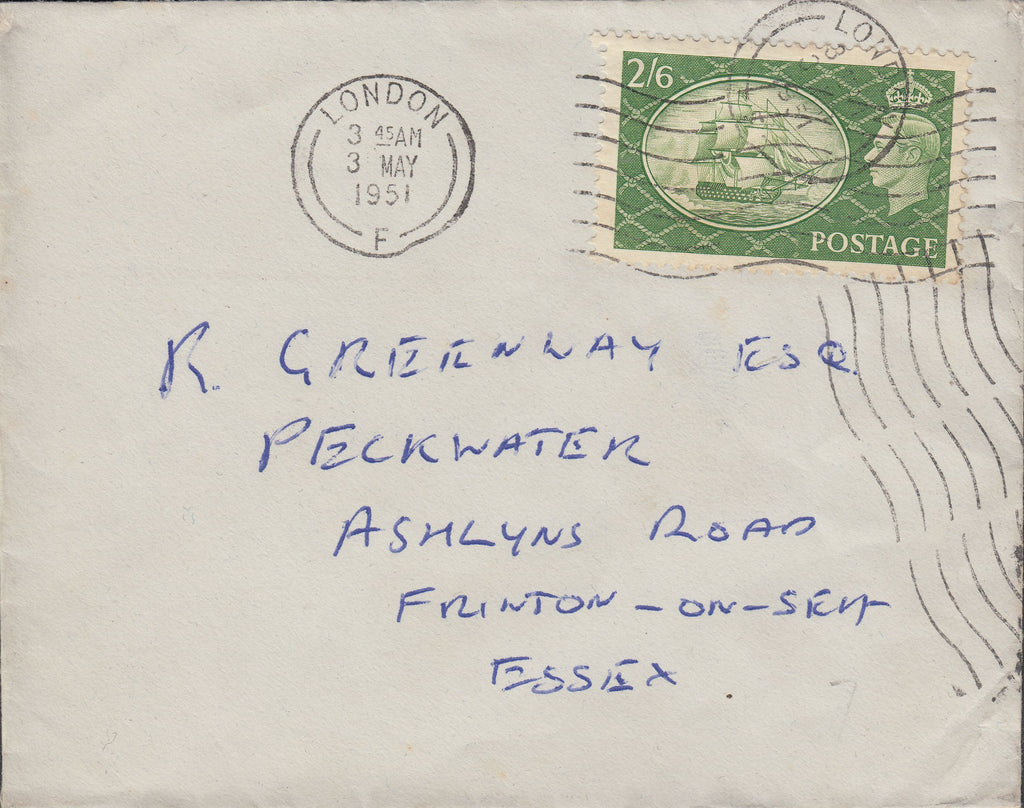 LONDON
3 45AM
3 MAY
1951
F
2/6
POSTAGE
R. GREENWAY ESQ.
PECKWATER
ASHLYNS ROAD
FRINTON-ON-SEA
ESSEX